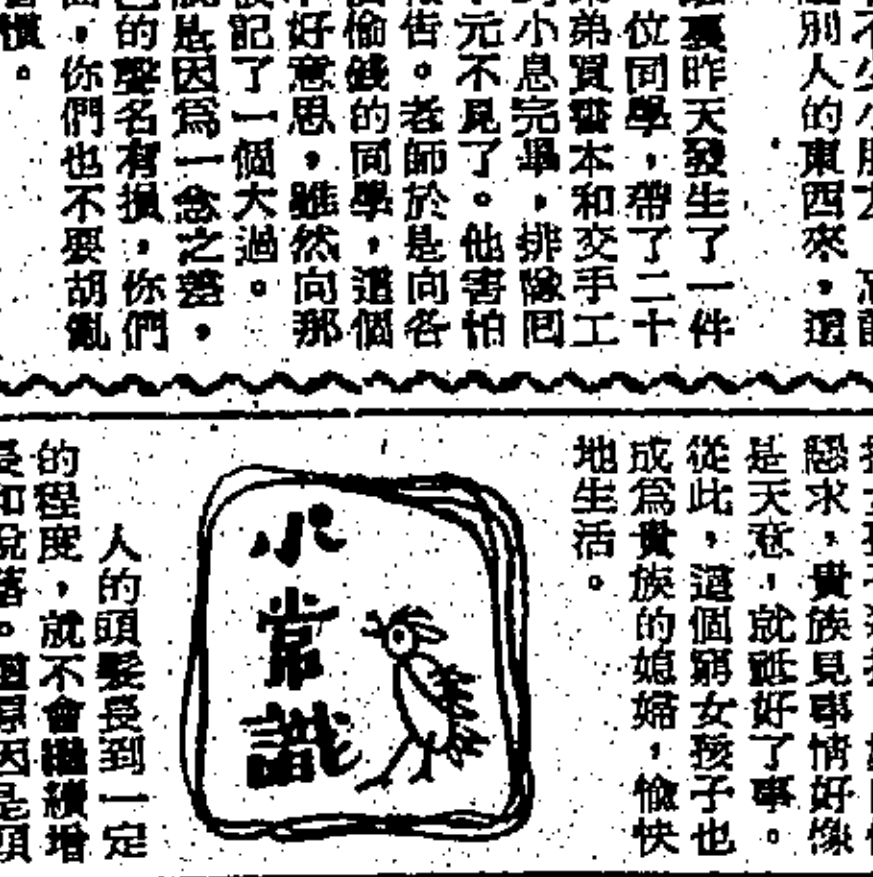 別人的東西來，這
裏昨天發生了一件
位同學，帶了二十
弟買書本和交手工
小息完畢，排隊回
元不見了。他害怕
告。老師於是向各
偷錢的同學，這個
好意思，雖然向那
記了一個大過。
是因為一念之差，
的聲名有損，你們
，你們也不要胡亂
懇求，貴族見事情好像
是天意，就祗好了事。
從此，這個窮女孩子也
成為貴族的媳婦，愉快
地生活。
小常識
人的頭髮長到一定
的程度，就不會繼續增
和脫落。這原因是頭